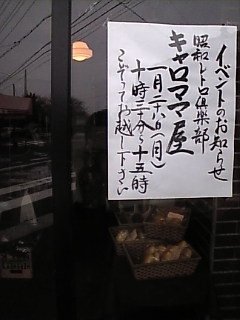 イベントのお知らせ
昭和レトロ倶楽部
キャロママ屋
一月二十八日(月)
十時三十分~十五時
こぞってお越し下さい